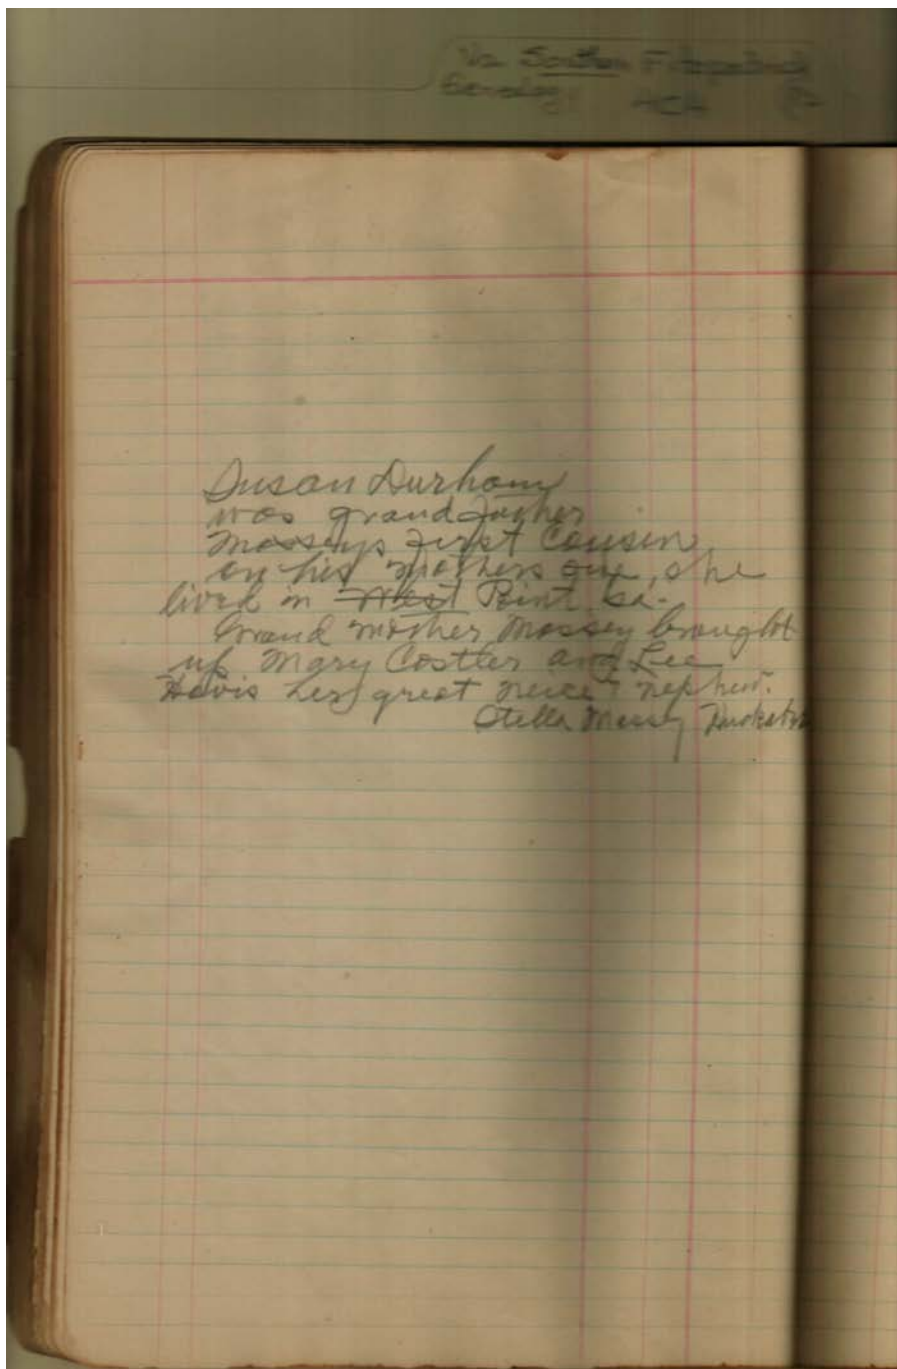 Susan Durham
was grandfather
Masseys first cousin
on his mothers side, she
lived in West Point Ga.
Grand mother Massey brought
up Mary Costler and Lee
Davis her great neice & nephew.
Stella Massey